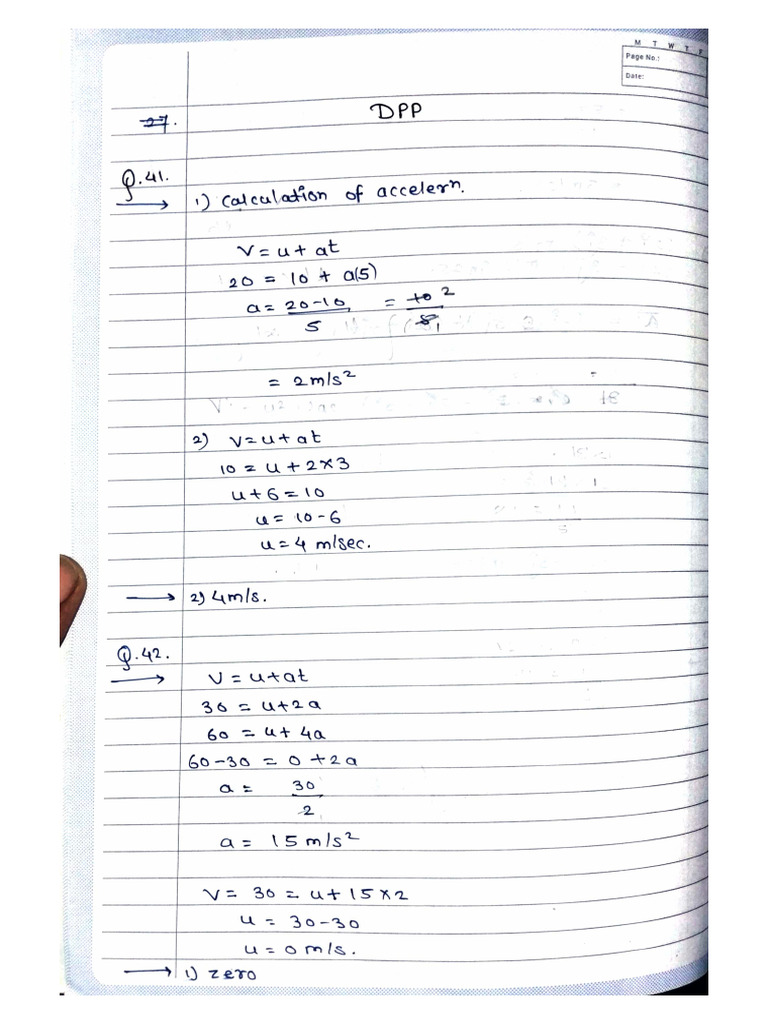 M T W T F
Page No.:
Date:
DPP
27.
Q.41.
1) Calculation of accelern.
V = u + at
20 = 10 + a(5)
a = 20-10 / 5 = 10 2 / 5 1
= 2 m/s²
2) V = u + at
10 = u + 2×3
u + 6 = 10
u = 10 - 6
u = 4 m/sec.
→ 2) 4 m/s.
Q.42.
→ V = u + at
30 = u + 2a
60 = u + 4a
60 - 30 = 0 + 2a
a = 30 / 2
a = 15 m/s²
V = 30 = u + 15 × 2
u = 30 - 30
u = 0 m/s.
→ 1) zero